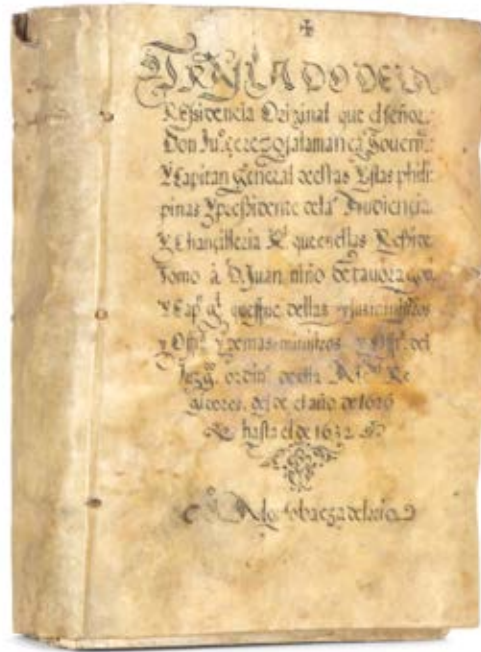 TRASLADO DE LA
Residencia Original que el señor
Don Juº çerezo salamanca Gouern.ºr
Y Capitan General destas Yslas phili
pinas Y pressidente de la Audiencia
Y Chançilleria Rl. que en ellas Reside
Tomo à D. Juan niño de tauora gou.
Y Capn. gl. que fue dellas y sus ministros
y Offis. y demas ministros y Offis. del
Juzgº. ordinº. de esta Re
gidores, desde el año de 1626
hasta el de 1632